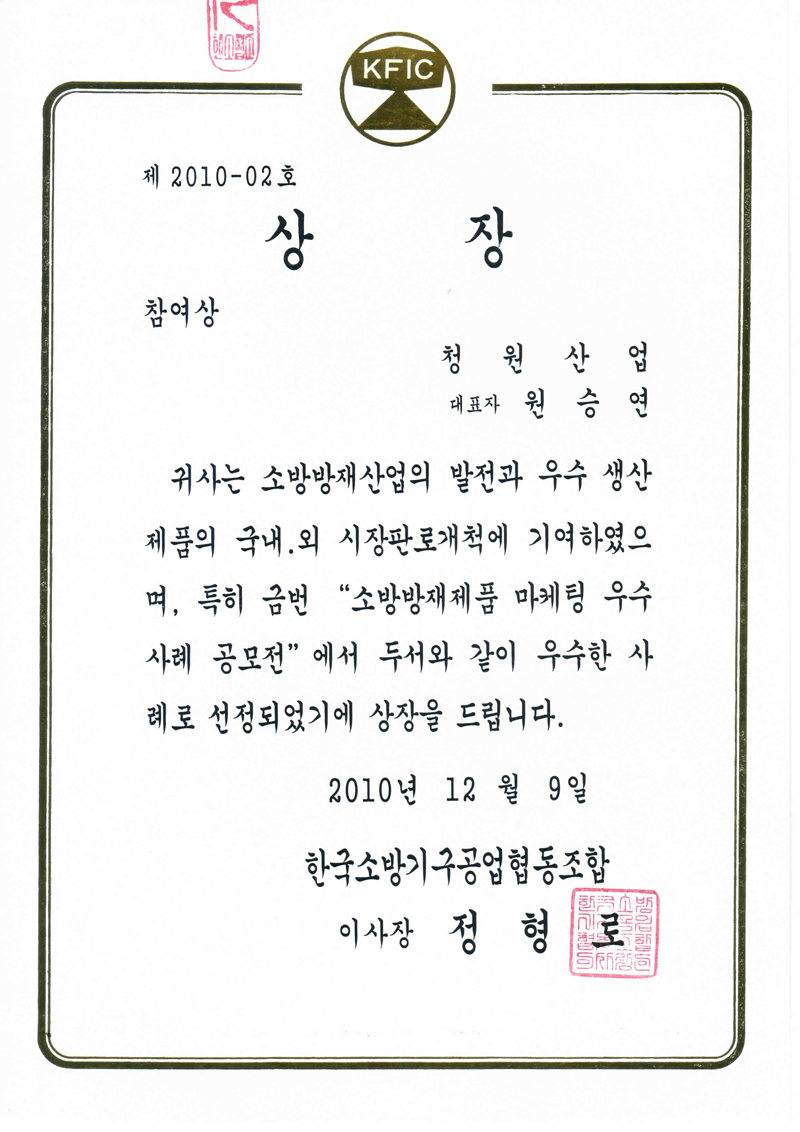 KFIC
제 2010-02호
상 장
참여상
청 원 산 업
대표자 원 승 연
귀사는 소방방재산업의 발전과 우수 생산
제품의 국내.외 시장판로개척에 기여하였으
며, 특히 금번 “소방방재제품 마케팅 우수
사례 공모전”에서 두서와 같이 우수한 사
례로 선정되었기에 상장을 드립니다.
2010년 12 월 9일
한국소방기구공업협동조합
이사장 정 형 로